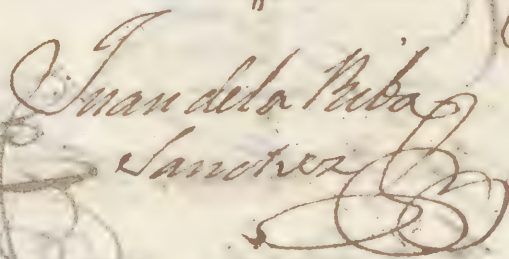 Juan dela Riba
Sanchez